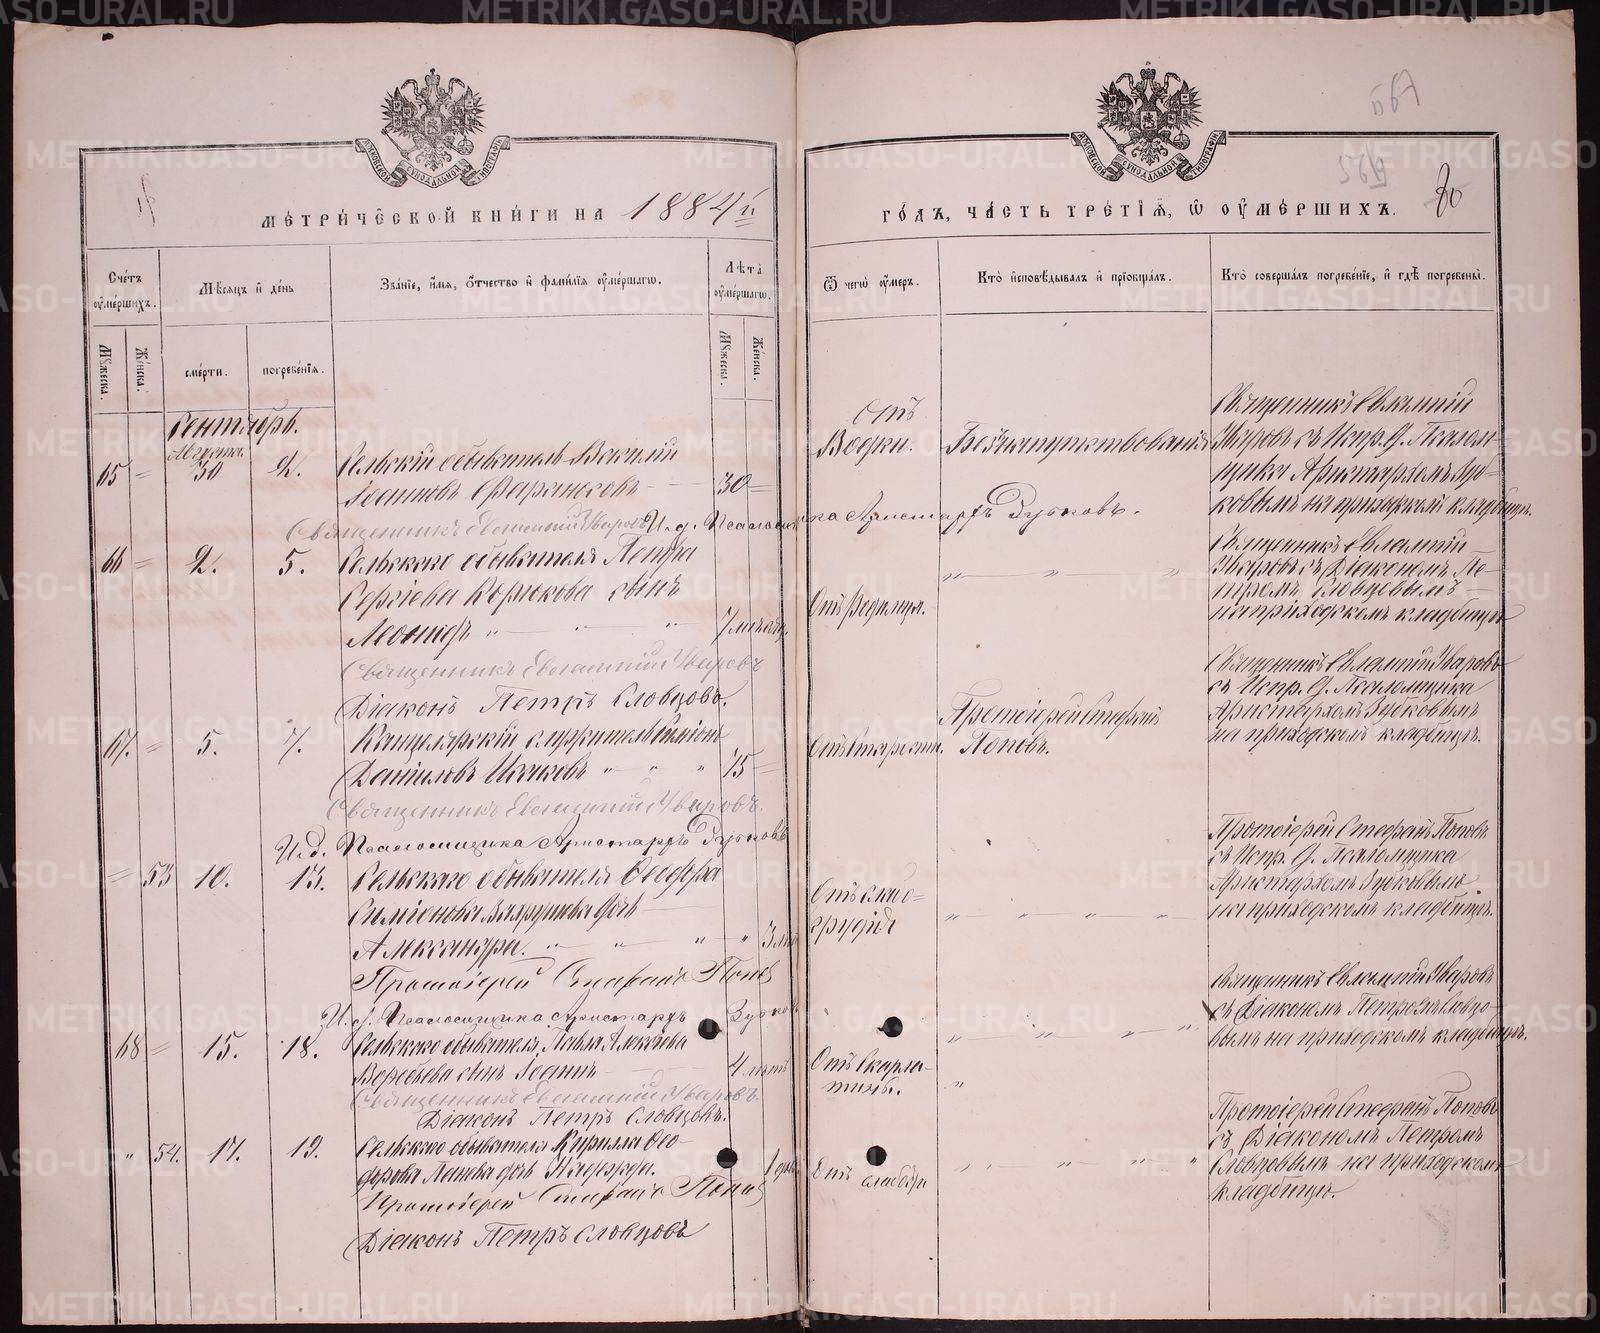 МЕТРИЧЕСКОЙ КНИГИ НА 1884й
ГОДЪ, ЧАСТЬ ТРЕТІЯ, Ѿ ОУМЕРШИХЪ. 80
Счетъ оумершихъ.
Мѣсяцъ и день
Званіе, имя, отчество и фамилія оумершагѡ.
Лѣта оумершагѡ.
Ѿ чегѡ оумеръ.
Кто исповѣдывалъ и пріобщалъ.
Кто совершалъ погребеніе, и гдѣ погребены.
Мужеска.
Женска.
смерти.
погребенія.
Мужеска.
Женска.
Сентябрь.
Августа
65 = 30 2. Сельскій обыватель Василій
Іоанновъ 30 =
Отъ Водки.
Священникъ Евлампій
Уваровъ съ Испр. Д. Псалом-
щика Аристархомъ Зуб-
ковымъ на приходскомъ кладбищѣ.
Священникъ Евлампій Уваровъ И.д. Псаломщика Аристархъ Зубковъ.
66 = 2. 5. Сельскаго обывателя Петра
Сергіева Корюкова сынъ
Леонидъ " — " — " 7 мѣсяц.
Отъ Родимца.
" — " — "
Священникъ Евлампій
Уваровъ съ Діакономъ Пе-
тромъ Словцовымъ
на приходскомъ кладбищѣ
Священникъ Евлампій Уваровъ
Діаконъ Петръ Словцовъ.
67. = 5. 7. Канцелярскій служитель Симеонъ
Даніиловъ Исаковъ " — " — " 75 =
Отъ Старости.
Протоіерей Стефанъ
Поповъ.
Священникъ Евлампій Уваровъ
съ Испр. Д. Псаломщика
Аристархомъ Зубковымъ
на приходскомъ кладбищѣ.
Священникъ Евлампій Уваровъ.
И.д. Псаломщика Аристархъ Зубковъ
= 53 10. 13. Сельскаго обывателя Ѳеодора
Симеонова Вахрушева дочь
Александра. " — " — " — " 3
" — " — " — "
Протоіерей Стефанъ Поповъ
съ Испр. Д. Псаломщика
Аристархомъ Зубковымъ
на приходскомъ кладбищѣ.
Протоіерей Стефанъ Попов
И.д. Псаломщика Аристархъ Зубков
68 = 15. 18. Сельскаго обывателя Павла Алексіева
Воробьева сынъ Іоаннъ 4 лѣтъ
Отъ Скарла-
тины.
" — " — " — "
Священникъ Евлампій Уваровъ
съ Діакономъ Петромъ Словцо-
вымъ на приходскомъ кладбищѣ.
Священникъ Евлампій Уваровъ.
Діаконъ Петръ Словцовъ.
" 54. 17. 19. Сельскаго обывателя Кирилла Ѳео-
дорова дочь Надежда. 1
Отъ слабости
" — " — " — "
Протоіерей Стефанъ Поповъ
съ Діакономъ Петромъ
Словцовымъ на приходскомъ
кладбищѣ.
Протоіерей Стефанъ Попов
Діаконъ Петръ Словцовъ
METRIKI.GASO-URAL.RU